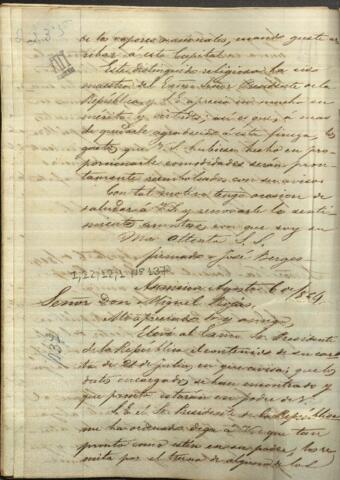 de los vapores nacionales, cuando guste ar
ribar a esta Capital.
Este distinguido religioso ha sido
maestro del Exmo Señor Presidente de la
República, y S.E. aprecia mucho su
mérito y virtudes; así es que, a mas
de quedarle agradecido á esta fineza, los
gastos que V.S. hubiese hecho en pro
porcionarle comodidades serán pron
tamente reembolsados con su aviso.
Con tal motivo tengo ocasion de
saludar á V.S. y renovarle los senti
mientos con que soy su
Muy Atento S. S.
firmado José Berges
I,22,12,1 Nº 137
Asuncion Agosto 6 de 1864
Señor Don Miguel Rojas
Mi apreciado Sor y amigo,
Elevé al Exmo Sr. Presidente
de la República el contenido de su car
ta de 21 de julio, en que avisa; que los
encargados se han encontrado y
que pronto estarán en poder de V.
S.E. el Sr. Presidente de la República
me ha ordenado diga á V. que tan
pronto como estén en su poder, los re
mita por el turno de alguno de los
137